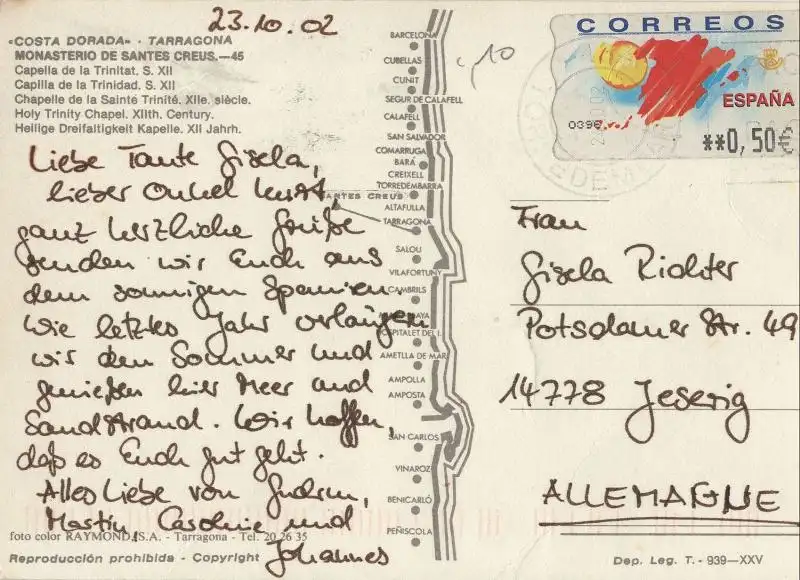 23.10.02
«COSTA DORADA» - TARRAGONA
MONASTERIO DE SANTES CREUS.—45
Capella de la Trinitat. S. XII
Capilla de la Trinidad. S. XII
Chapelle de la Sainté Trinité. XIIe. siècle.
Holy Trinity Chapel. XIIth. Century.
Heilige Dreifaltigkeit Kapelle. XII Jahrh.
Liebe Tante Gisela,
lieber Onkel Kurt,
ganz herzliche Grüße
senden wir Euch aus
dem sonnigen Spanien.
Wie letztes Jahr verlängern
wir den Sommer und
genießen hier Meer und
Sandstrand. Wir hoffen,
daß es Euch gut geht.
Alles Liebe von Gudrun,
Martin, Caroline und
Johannes
foto color RAYMOND, S.A. - Tarragona - Tel. 20 26 35
Reproducción prohibida - Copyright
BARCELONA
CUBELLAS
CUNIT
SEGUR DE CALAFELL
CALAFELL
SAN SALVADOR
COMARRUGA
BARÁ
CREIXELL
TORREDEMBARRA
SANTES CREUS
ALTAFULLA
TARRAGONA
SALOU
VILAFORTUNY
CAMBRILS
HOSPITALET DEL I.
AMETLLA DE MAR
AMPOLLA
AMPOSTA
SAN CARLOS
VINAROZ
BENICARLÓ
PEÑISCOLA
,10
CORREOS
ESPAÑA
0396
**0,50€
Frau
Gisela Richter
Potsdamer Str. 49
14778 Jeserig
ALLEMAGNE
Dep. Leg. T. - 939—XXV